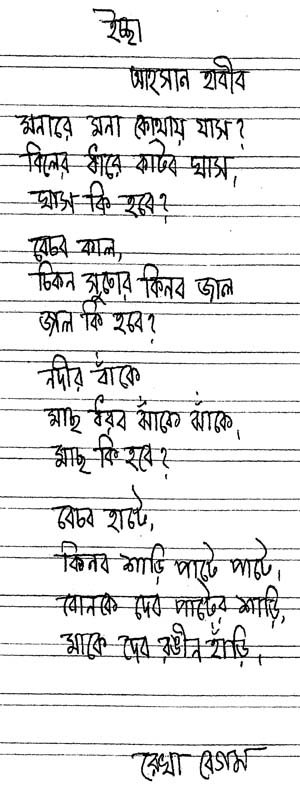 ইচ্ছা
আহসান হাবীব
মনারে মনা কোথায় যাস?
বিলের ধারে কাটব ঘাস,
ঘাস কি হবে?
বেচব কাল,
চিকন সুতোর কিনব জাল
জাল কি হবে?
নদীর বাঁকে
মাছ ধরব ঝাঁকে ঝাঁকে,
মাছ কি হবে?
বেচব হাটে,
কিনব শাড়ি পাটে পাটে।
বোনকে দেব পাটের শাড়ি,
মাকে দেব রঙীন হাঁড়ি।
রেখা বেগম